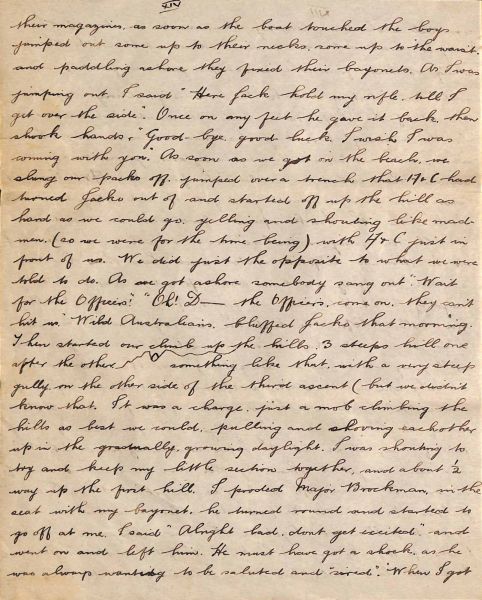 XIV
their magazines, as soon as the boat touched the boys
jumped out some up to their necks, some up to the waist
and paddling ashore they fixed their bayonets. As I was
jumping out. I said "Here Jack hold my rifle, till I
get over the side". Once on my feet he gave it back, then
shook hands, "Good-bye, good luck, I wish I was
coming with you. As soon as we got on the beach, we
slung our packs off, jumped over a trench that A & C had
turned Jacko out of and started off up the hill as
hard as we could go, yelling and shouting like mad
men, (so we were for the time being) with A & C just in
front of us. We did just the opposite to what we were
told to do. As we got ashore somebody sang out "Wait
for the Officers! "Oh! D— the Officers, come on, they can't
hit us" Wild Australians, bluffed Jacko that morning.
Then started our climb up the hills. 3 steep hills one
after the other something like that, with a very steep
gully, on the other side of the third ascent (but we didn't
know that. It was a charge, just a mob climbing the
hills as best we could, pulling and shoving eachother
up in the gradually, growing daylight. I was shouting to
try and keep my little section together, and about ½
way up the first hill, I proded Major Brockman, in the
seat with my bayonet, he turned round and started to
go off at me, I said "Alright lad, dont get excited", and
went on and left him. He must have got a shock, as he
was always wanting to be saluted and "sired". When I got